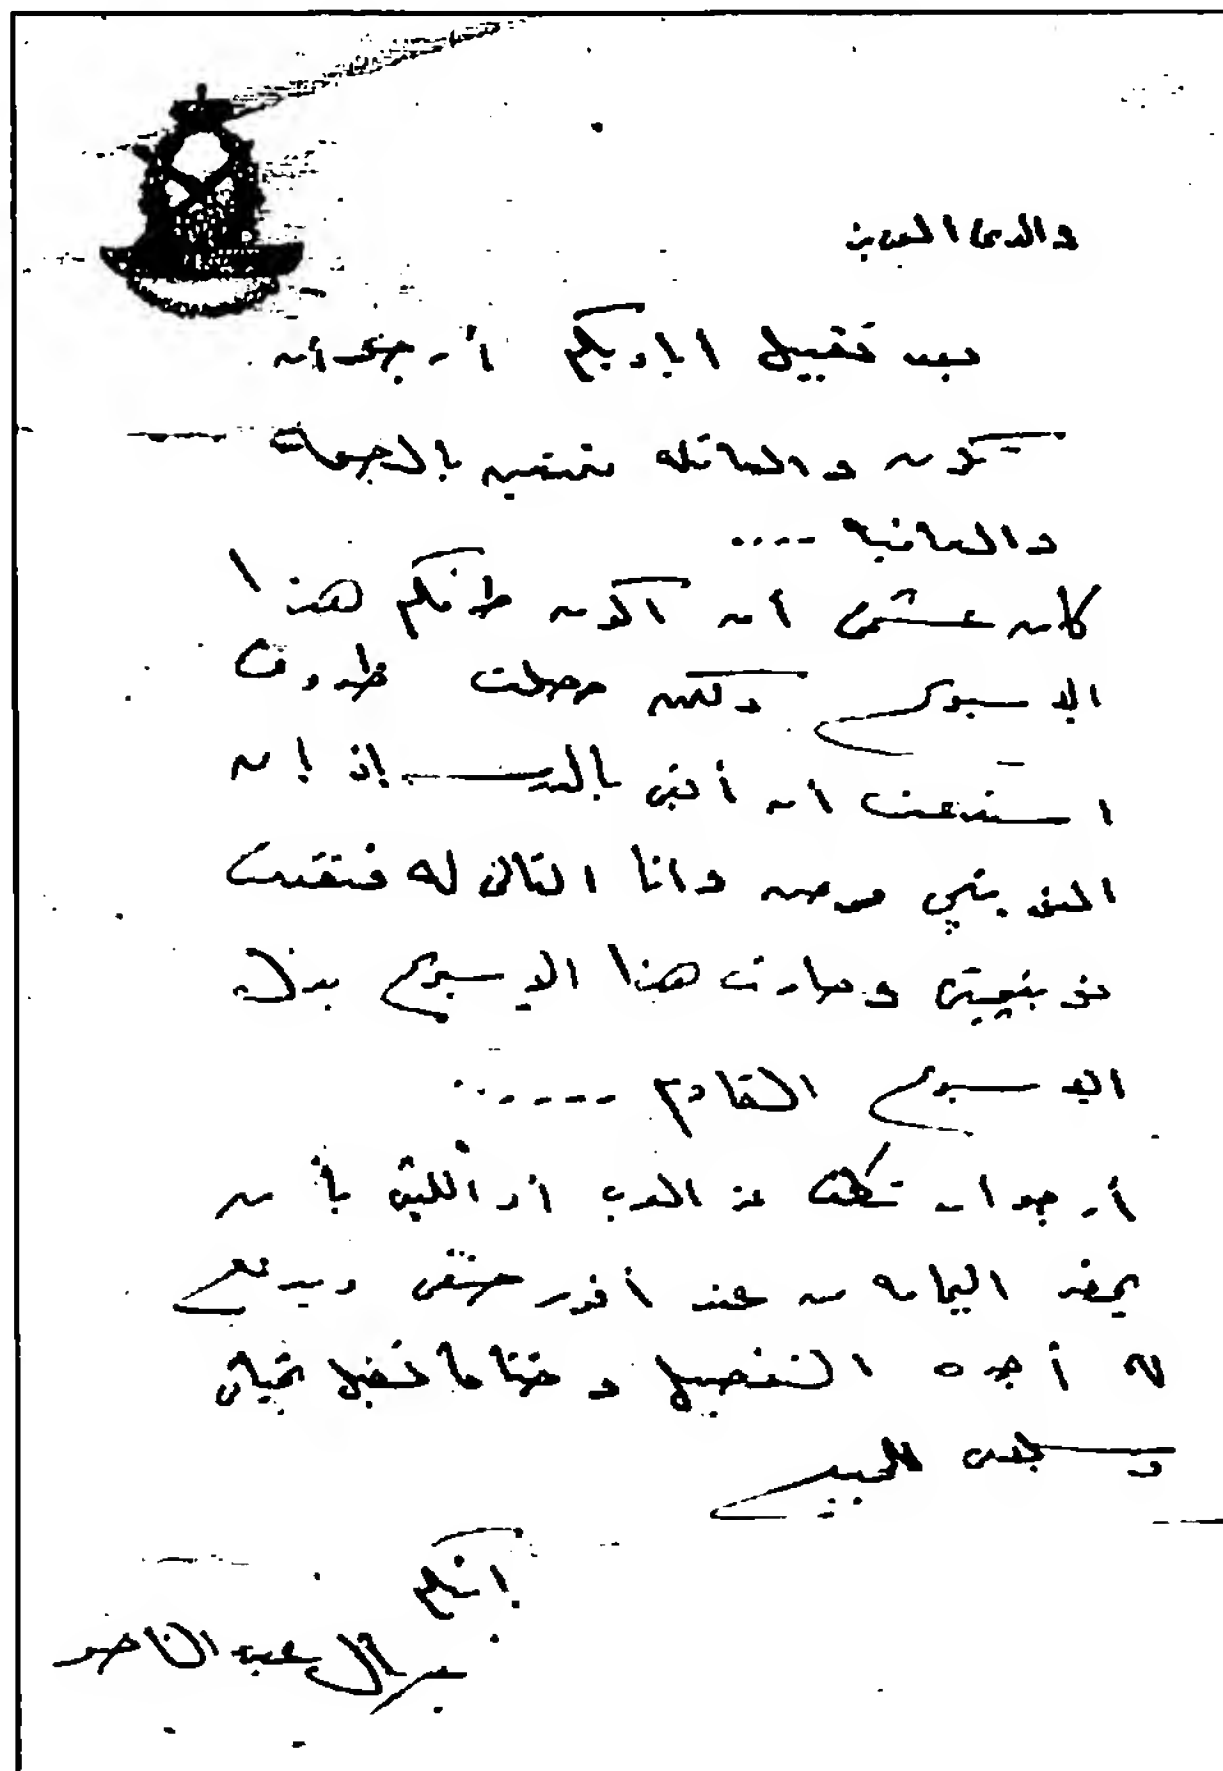 والدى العزيز
بعد تقبيل اياديكم أرجو أن
تكون والعائلة متمتعين بالصحة
والعافية ....
كان عشمى أن اكون طرفكم هذا
الاسبوع ولكن حصلت ظروف
استدعت أن أبقى بالمدرسة إذ إن
النوبتجى مرض وانا التالى له فبقيت
نوبتجيتى وصارت هذا الاسبوع بدل
الاسبوع القادم .....
أرجو أن عز العرب أو الليثى بأن
يحضر من عند أفندى حنفى ويدفع
له أجرة التفصيل وختاما تفضل تحياتى
وسلامى للجميع
ابنكم
جمال عبد الناصر